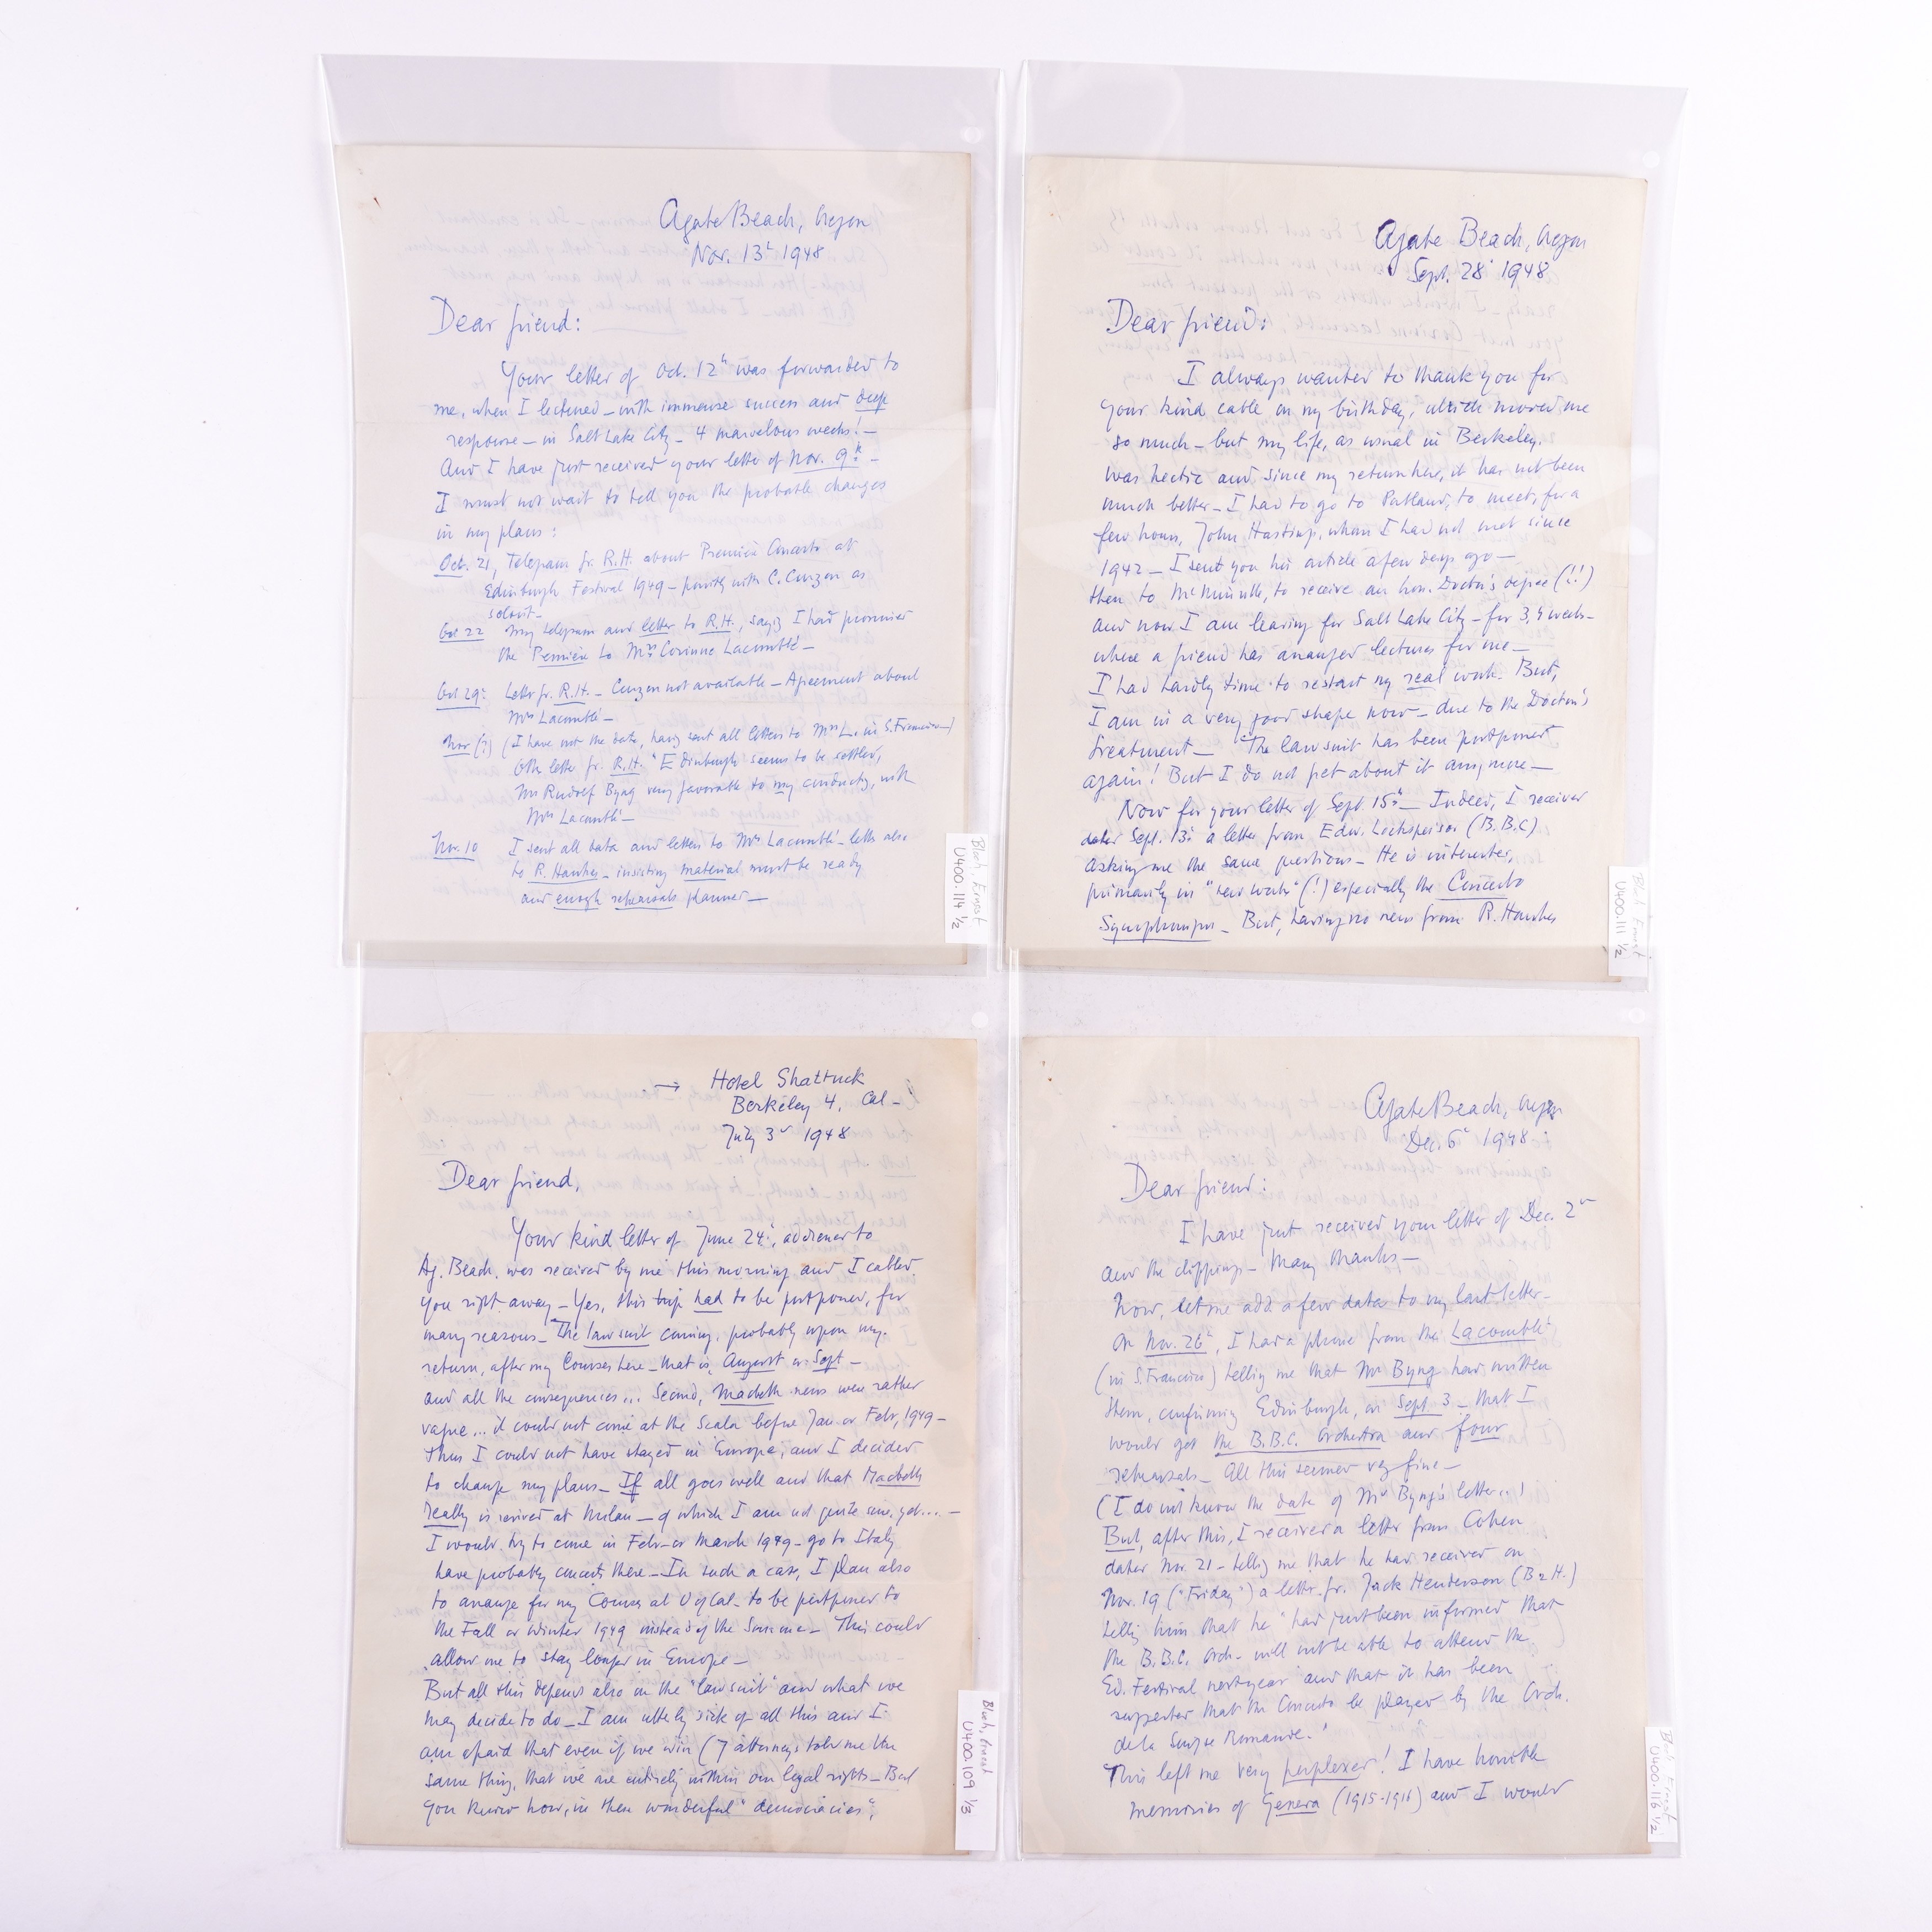 Agate Beach, Oregon
Nov. 13th 1948
Dear friend:
Your letter of Oct. 12th was forwarded to
me, when I lectured – with immense success and deep
response – in Salt Lake City – 4 marvelous weeks! –
And I have just received your letter of Nov. 9th –
I must not wait to tell you the probable changes
in my plans:
Oct. 21, Telegram fr. R.H. about Première Concerto at
Edinburgh Festival 1949 – with C. Curzon as
soloist –
Oct 22 my telegram and letter to R.H., sayig I had promised
the Première to Mrs Corinne Lacomblé –
Oct 29: Letter fr. R.H. – Curzon not available – Agreement about
Mrs Lacomblé –
Nov (?) (I have not the date, havig sent all letters to Mrs L. in S. Francisco –)
Oth letter fr. R.H. "Edinburgh seems to be settled,
Mr Rudolf Byng very favorable to my conductig, with
Mrs Lacomblé –
Nov. 10 I sent all data and letters to Mrs Lacomblé – letter also
to R. Hawkes – insisting material must be ready
and enough rehearsals planned –
Bloch, Ernest
U400.114 1/2
Agate Beach, Oregon
Sept. 28th 1948
Dear friend:
I always wanted to thank you for
your kind cable on my birthday, which moved me
so much – but my life, as usual in Berkeley.
was hectic and, since my return here, it has not been
much better – I had to go to Portland, to meet, for a
few hours, John Hastings, whom I had not met since
1942 – I sent you his article a few days ago –
then to McMinnville, to receive an hon. Doctor's degree (!!)
and now I am leaving for Salt Lake City – for 3, 4 weeks –
where a friend has arranged lectures for me –
I had hardly time to restart my real work. But,
I am in a very good shape now – due to the Doctor's
treatment – The lawsuit has been postponed
again! But I do not fret about it anymore –
Now for your letter of Sept 15th – Indeed, I received
dated Sept. 13th a letter from Edw. Lockspeiser (B.B.C.)
asking me the same questions – He is interested,
primarily in "new works" (!) especially the Concerto
Symphonique – But, having no news from R. Hawkes
Bloch, Ernest
U400.111 1/2
→ Hotel Shattuck
Berkeley 4, Cal –
July 3rd 1948
Dear friend,
Your kind letter of June 24th, addressed to
Ag. Beach, was received by me this morning and I cabled
you right away – Yes, this trip had to be postponed, for
many reasons – The lawsuit coming, probably upon my
return, after my Courses here – that is, August or Sept –
and all the consequences... Second, Macbeth news were rather
vague... it could not come at the Scala before Jan or Febr, 1949 –
thus I could not have stayed in Europe, and I decided
to change my plans – If all goes well and that Macbeth
really is revived at Milan – of which I am not quite sure, yet... –
I would try to come in Febr – or March 1949 – go to Italy
have probably concerts there – In such a case, I plan also
to arrange for my Courses at U of Cal – to be postponed to
the Fall or Winter 1949 instead of the Summer – This could
allow me to stay longer in Europe –
But all this depends also on the "lawsuit" and what we
may decide to do – I am utterly sick of all this and I
am afraid that even if we win (7 attorneys told me the
same thing, that we are entirely within our legal rights – But
you know how, in these wonderful "democracies",
Bloch, Ernest
U400.109 1/3
Agate Beach, Oregon
Dec. 6th 1948
Dear friend:
I have just received your letter of Dec. 2nd
and the clippings – Many thanks –
Now, let me add a few data to my last letter –
On Nov. 26th, I had a phone from the Lacomblé
(in S. Francisco) telling me that Mr Byng had written
them, confirming Edinburgh, on Sept 3 – that I
would get the B.B.C. Orchestra and four
rehearsals – All this seemed very fine –
(I do not know the date of Mr Byng's letter..)
But, after this, I received a letter from Cohen
dated Nov. 21 – tellig me that he had received on
Nov. 19 ("Friday") a letter fr. Jack Henderson (B&H.)
tellig him that he "had just been informed that
the B.B.C. Orch – will not be able to attend the
Ed. Festival next year and that it has been
suggested that the Concerto be played by the Orch.
de la Suisse Romande."
This left me very perplexed! I have horrible
memories of Geneva (1915-1916) and I would
Bloch, Ernest
U400.116 1/2